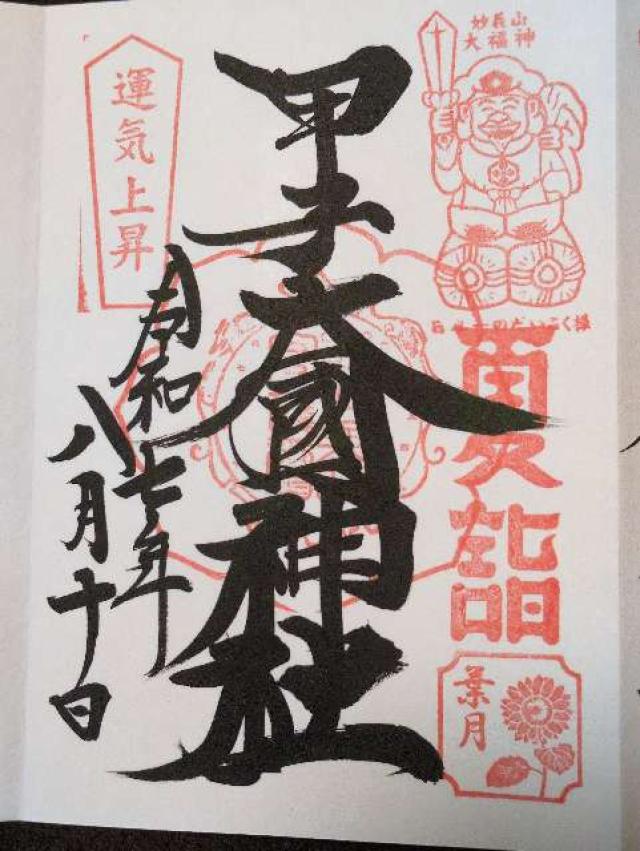 妙長山
大福神
だいこく様
夏詣
葉月
甲子大國神社
令和七年
八月十日
運気上昇